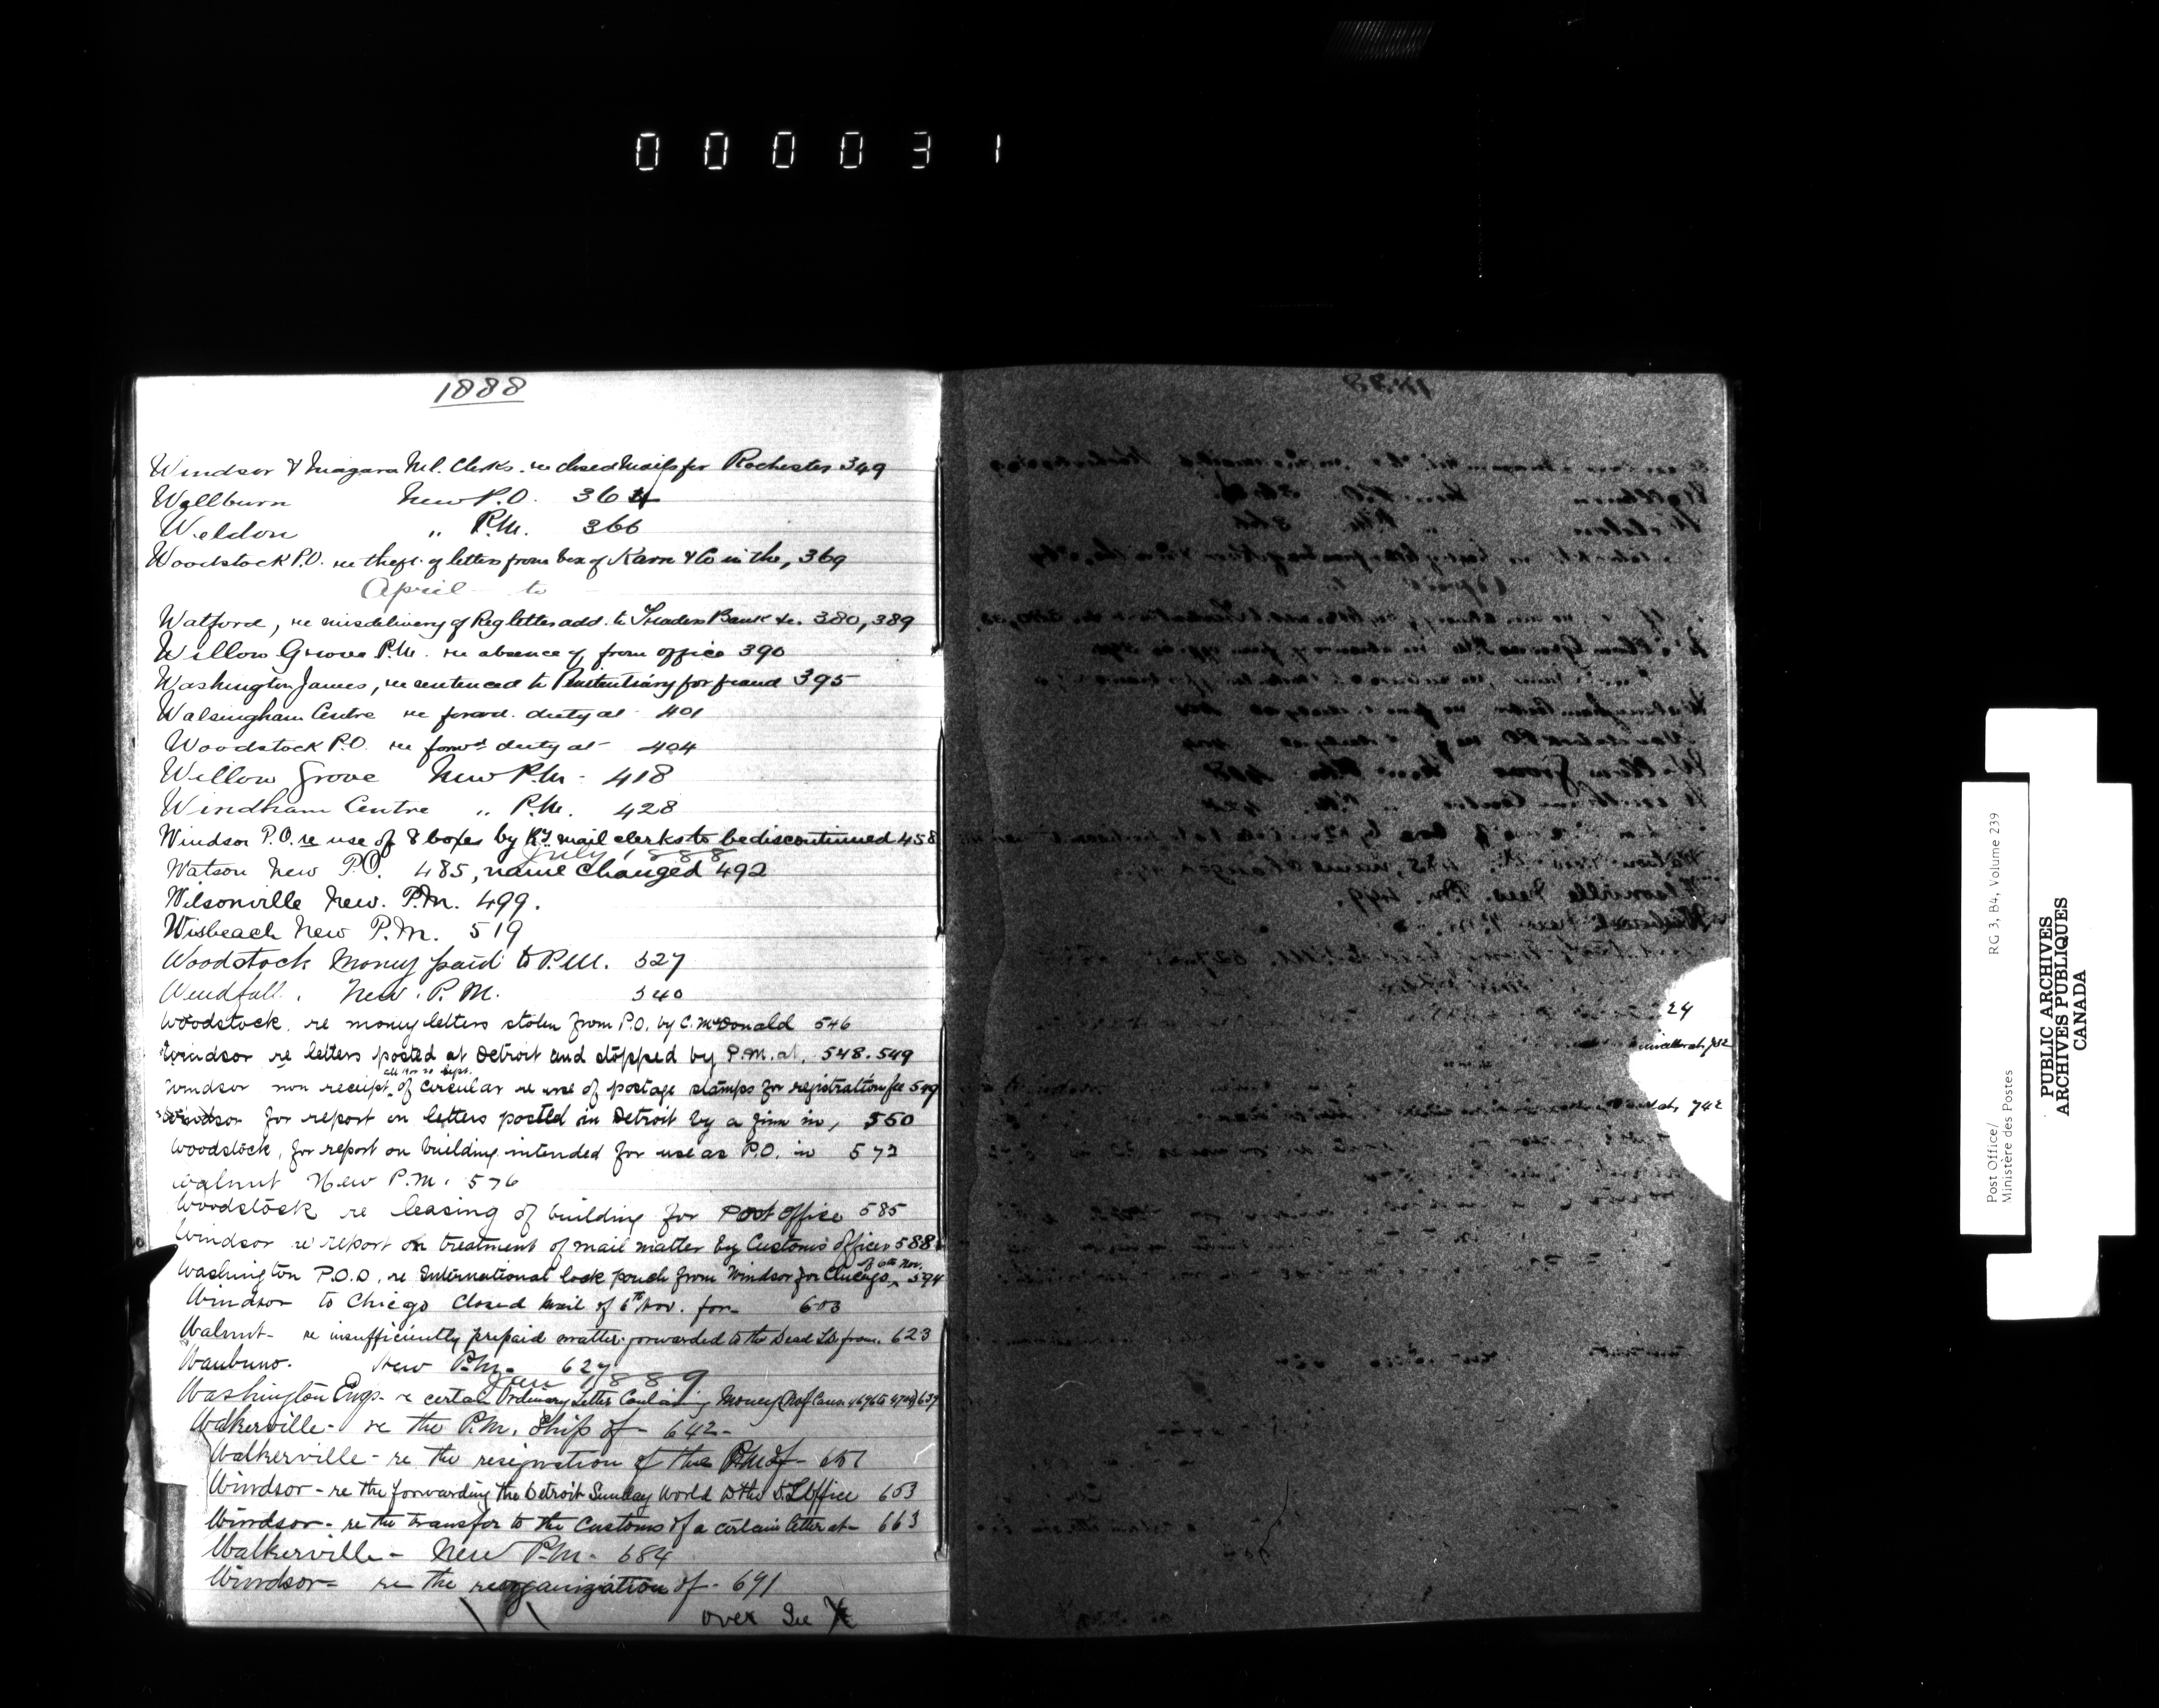 000031
1888
Windsor & Niagara Ml. Clerks. re closed Mails for Rochester 349
Wellburn New P.O. 364
Weldon " P.M. 366
Woodstock P.O. re theft of letters from box of Karn & Co in the, 369
April to
Watford, re misdelivery of Reg letter add. to Traders Bank &c. 380, 389
Willow Grove P.M. re absence of from office 390
Washington James, re sentenced to Penitentiary for fraud 395
Walsingham Centre re forwd. duty at 401
Woodstock P.O. re forwd duty at 404
Willow Grove New P.M. 418
Windham Centre " P.M. 428
Windsor P.O. re use of 8 boxes by Ry mail clerks to be discontinued 458
July 1888
Watson New P.O. 485, name changed 492
Wilsonville New. P.M. 499.
Wisbeach New P.M. 519
Woodstock Money paid to P.M. 527
Windfall. New. P.M. 540
Woodstock, re money letters stolen from P.O. by C. McDonald 546
Windsor re letters posted at Detroit and stopped by P.M. at, 548. 549
Windsor non receipt of circular re use of postage stamps for registration fee 549
Windsor for report on letters posted in Detroit by a firm in, 550
Woodstock, for report on building intended for use as P.O. in 572
Walnut New P.M. 576
Woodstock re leasing of building for Post Office 585
Windsor re report on treatment of mail matter by Customs officer 588
Washington P.O.D. re International lock pouch from Windsor for Chicago of 6th Nov. 594
Windsor to Chicago Closed Mail of 6th Nov. for 603
Walnut - re insufficiently prepaid matter forwarded to the Dead L.O. from. 623
Waubuno. New P.M. 627
Jan 1889
Washington Engs - re certain Ordinary Letter Containing Money 639
Walkerville - re the P.M. Ship of - 642 -
Walkerville - re the resignation of the P.M. of - 651
Windsor - re the forwarding the Detroit Sunday World to the D. L Office 653
Windsor - re the transfer to the Customs of a certain letter at - 663
Walkerville - New P.M. - 684
Windsor - re the reorganization of - 691
over See X
24
742
Post Office/ RG 3, B4, Volume 239
Ministère des Postes
PUBLIC ARCHIVES
ARCHIVES PUBLIQUES
CANADA